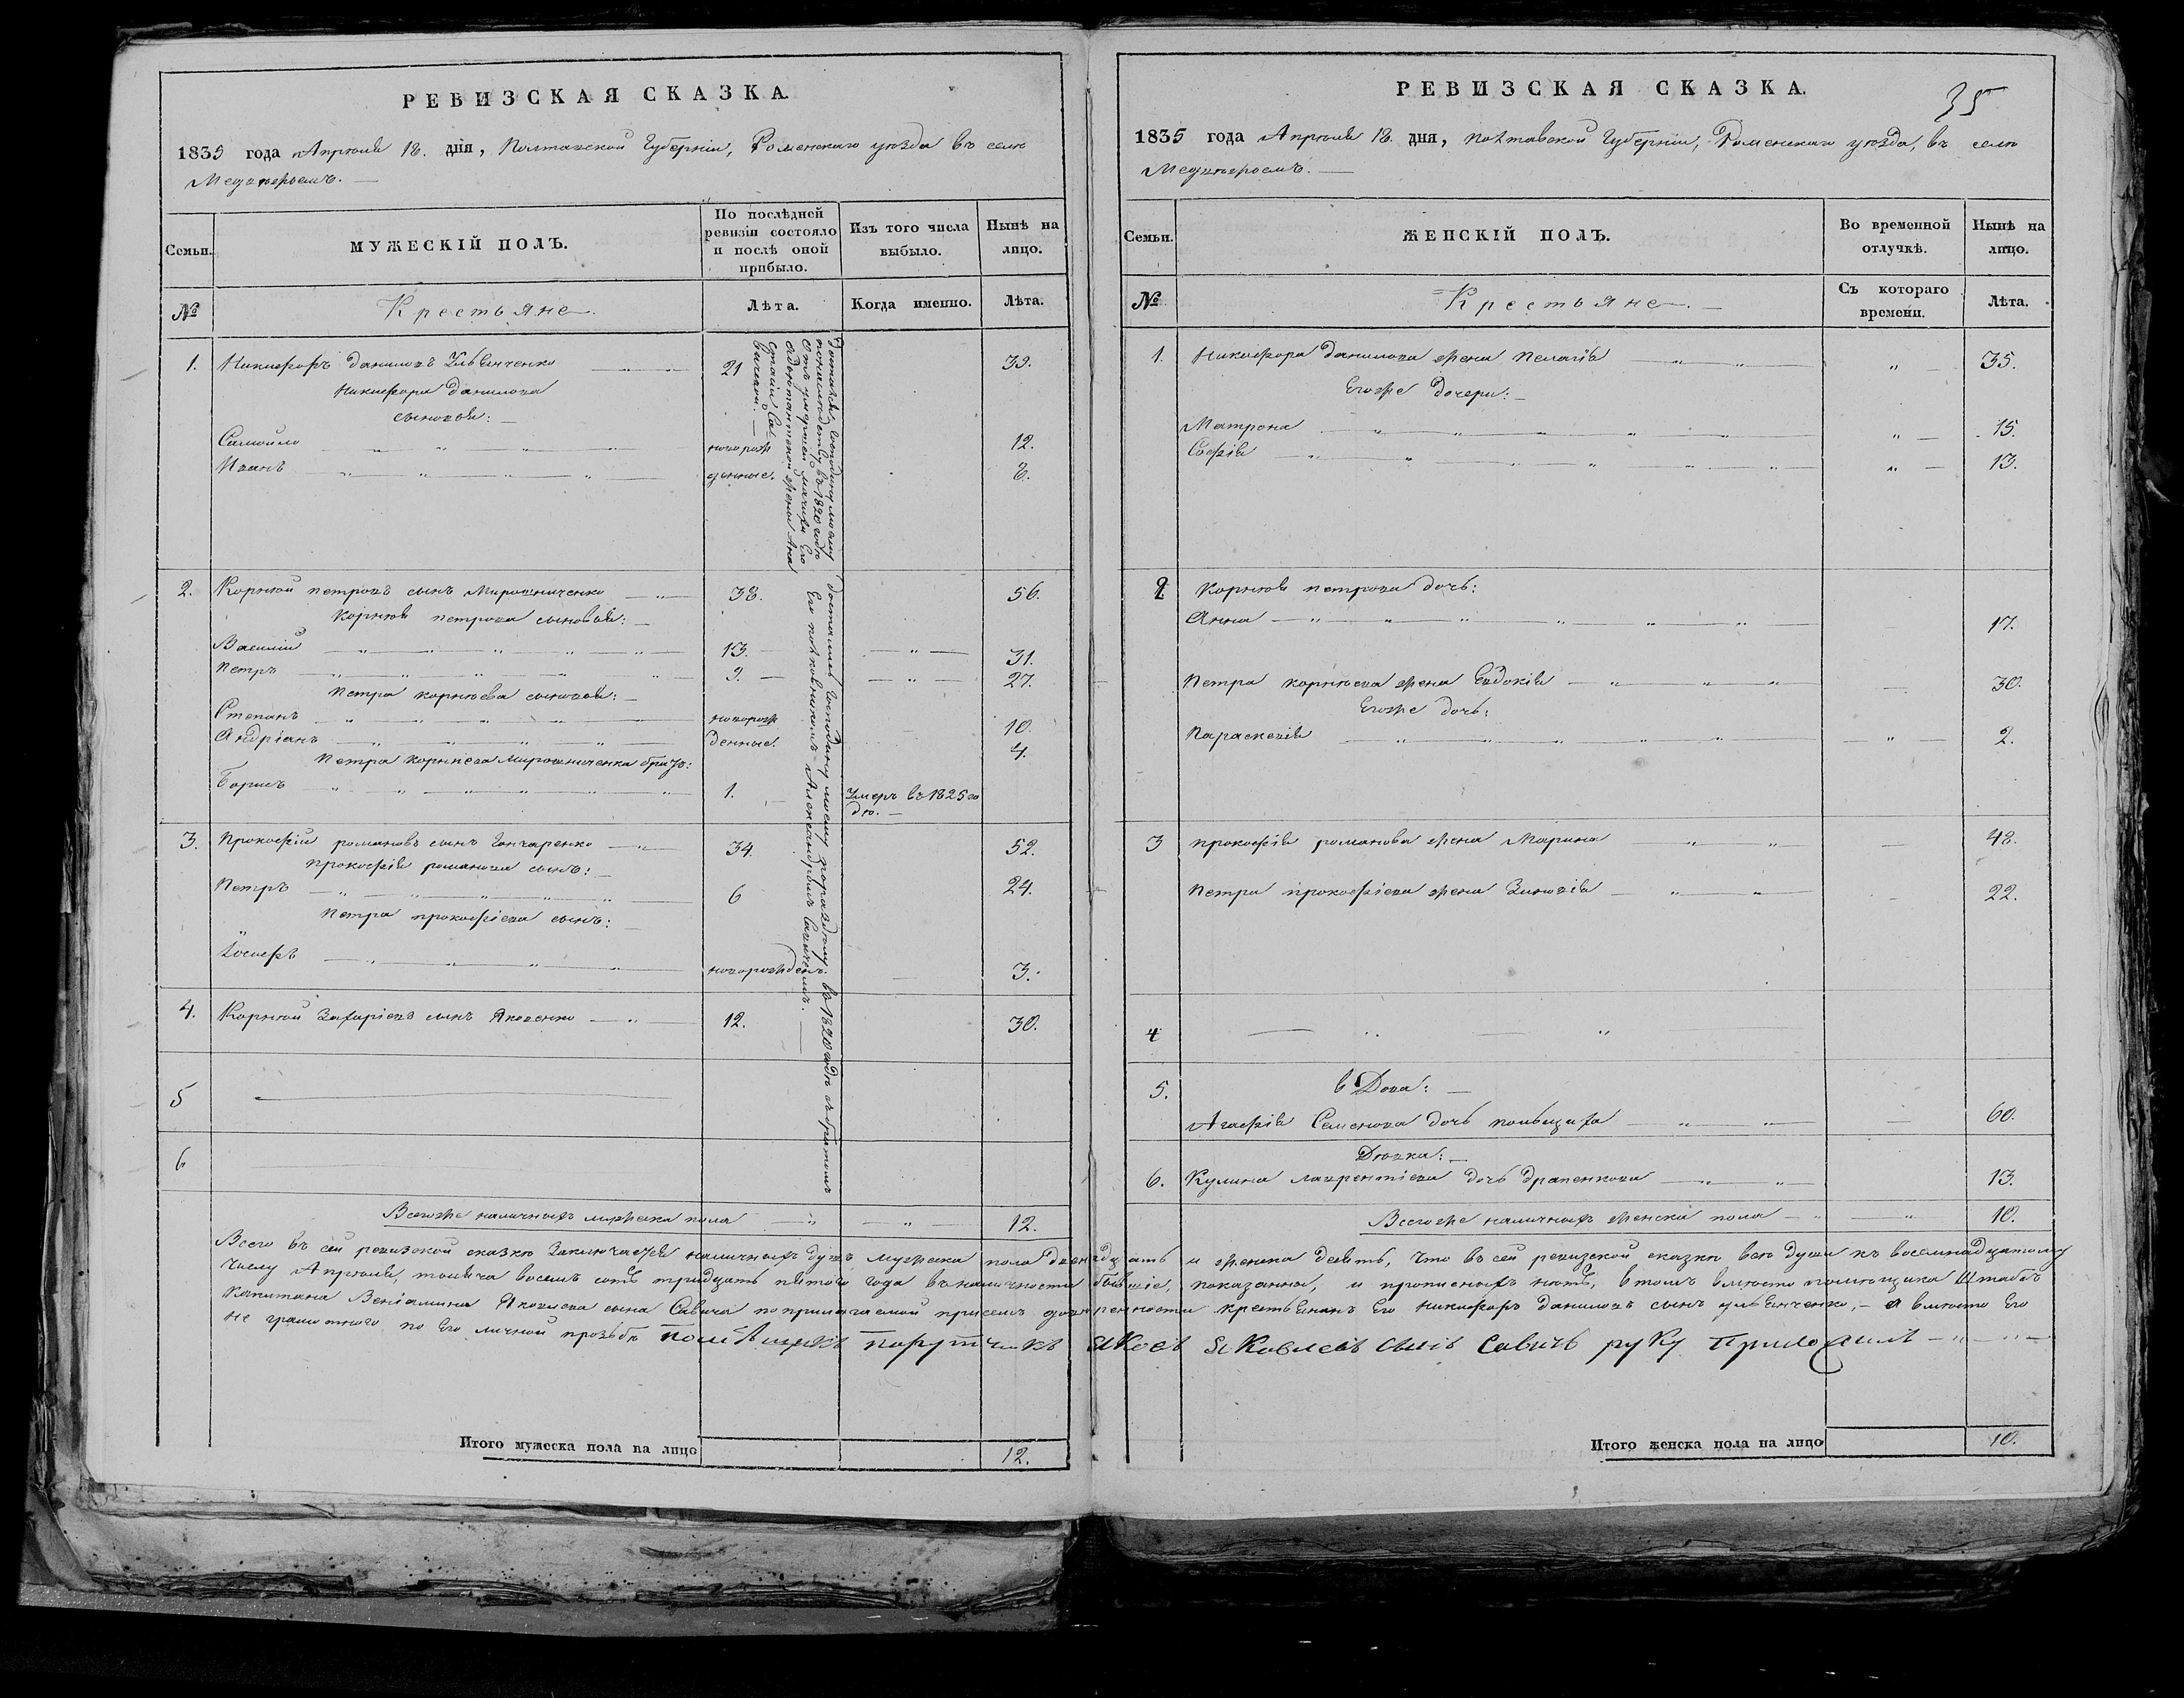 РЕВИЗСКАЯ СКАЗКА.
1835 года Апреля 18. дня, Полтавской Губернии, Роменскаго уезда въ селе
Семьи.
МУЖЕСКІЙ ПОЛЪ.
По послѣдней ревизіи состояло и послѣ оной прибыло.
Изъ того числа выбыло.
Нынѣ на лицо.
№
Крестьяне.
Лѣта.
Когда именно.
Лѣта.
1. Никифоръ Даниловъ 21 39.
Никифора Данилова
сыновья:
Самойло новорож 12.
Иванъ денные. 8.
2. Корней Петровъ сынъ Мирошниченко 38. 56.
Корнея Петрова сыновья:
Василий 13. 31.
Петръ 9. 27.
Петра Корнеева сыновья:
Степанъ новорож 10.
Андріанъ денные. 4.
Петра Корнеева Мирошниченка братъ:
Борисъ 1. Умеръ въ 1825 го
де.
3. Прокофій Романовъ сынъ Гончаренко 34. 52.
Прокофія Романова сынъ:
Петръ 6 24.
Петра Прокофіева сынъ:
Іосифъ новорожденъ. 3.
4. Корней Захаріевъ сынъ Яковенко 12. 30.
5
6
Всегоже наличныхъ мужеска пола 12.
Достался Господину моему
по наследству въ 1820 годе
Достались Господину моему по разделу въ 1820 годе съ братомъ
Его Полковникомъ Александромъ Савичемъ.
Итого мужеска пола на лицо 12.
РЕВИЗСКАЯ СКАЗКА.
35
1835 года Апреля 18. дня, Полтавской Губерніи, Роменскаго уезда, въ селе
Семьи.
ЖЕНСКІЙ ПОЛЪ.
Во временной отлучкѣ.
Нынѣ на лицо.
№
Крестьяне.
Съ котораго времени.
Лѣта.
1. Никифора Данилова жена Пелагія 35.
Егоже дочери:
Матрона 15.
Софія 13.
2 Корнея Петрова дочь:
Анна 17.
Петра Корнеева жена Евдокія 30.
Егоже дочь:
Параскевія 2.
3 Прокофія Романова жена Марина 48.
Петра Прокофіева жена Зиновія 22.
4
5. вдова:
Агафія Семенова дочь 60.
Девка:
6. Кулина Лаврентіева дочь Драпенкова 13.
Всегоже наличныхъ женска пола 10.
Всего въ сей ревизской сказке заключается наличныхъ душъ мужеска пола двенадцать и женска девять, что въ сей ревизской сказке все души къ восемнадцатому
числу Апреля, тысяча восемь сотъ тридцать пятого года въ наличности бывшіе, показанны, и прописныхъ нетъ, въ томъ вместо помещика Штабсъ
Капитана Веніамина Яковлева сына Савича по прилагаемой присемъ доверенности крестьянинъ Его Никифоръ Даниловъ сынъ, а вместо Его
не грамотного по Его личной прозьбе помещикъ порутчикъ Яковъ Яковлевъ сынъ Савичъ руку приложилъ
Итого женска пола на лицо 10.